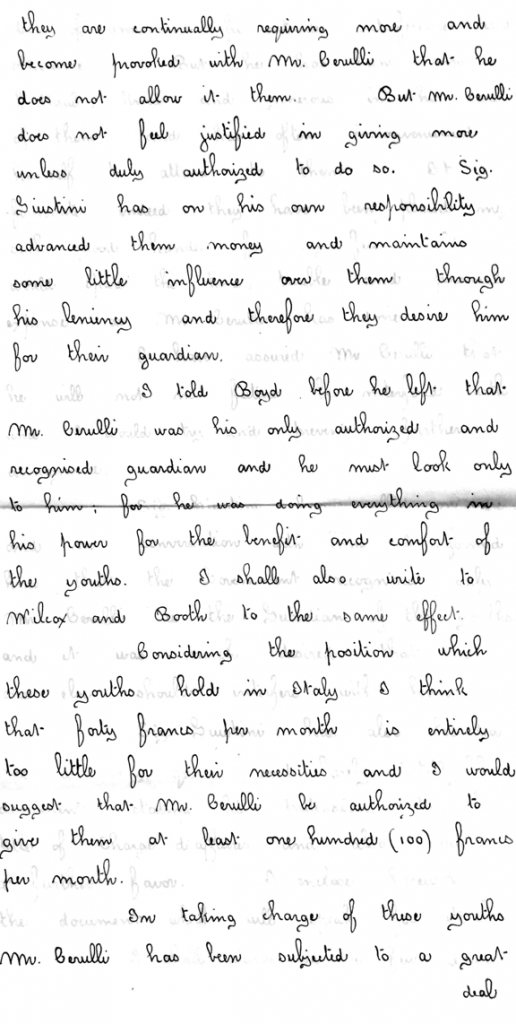 they are continually requiring more and
become provoked with Mr. Cerulli that he
does not allow it them. But Mr. Cerulli
does not feel justified in giving more
unless duly authorized to do so. Sig.
Giustini has on his own responsibility
advanced them money and maintains
some little influence over them through
his leniency and therefore they desire him
for their guardian.
I told Boyd before he left that
Mr. Cerulli was his only authorized and
recognised guardian and he must look only
to him; for he was doing everything in
his power for the benefit and comfort of
the youths. I shall also write to
Wilcox and Booth to the same effect.
Considering the position which
these youths hold in Italy I think
that forty francs per month is entirely
too little for their necessities and I would
suggest that Mr. Cerulli be authorized to
give them at least one hundred (100) francs
per month.
In taking charge of these youths
Mr. Cerulli has been subjected to a great
deal